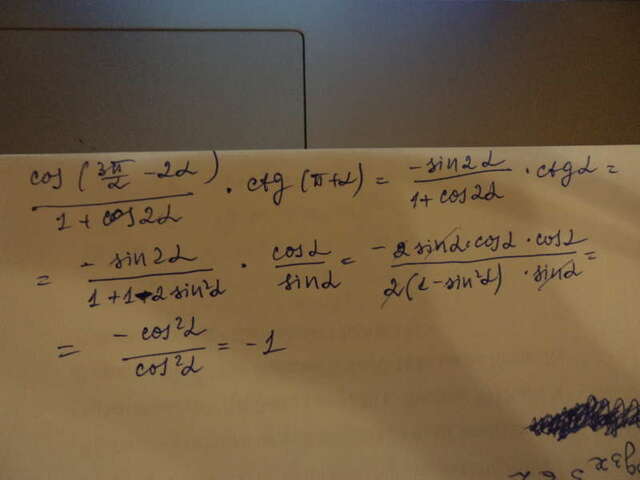 cos(3π/2 - 2α)/(1 + cos2α) · ctg(π+α) = -sin2α/(1+cos2α) · ctgα =
= -sin2α/(1+1-2sin²α) · cosα/sinα = -2sinα·cosα·cosα/(2(1-sin²α)·sinα) =
= -cos²α/cos²α = -1